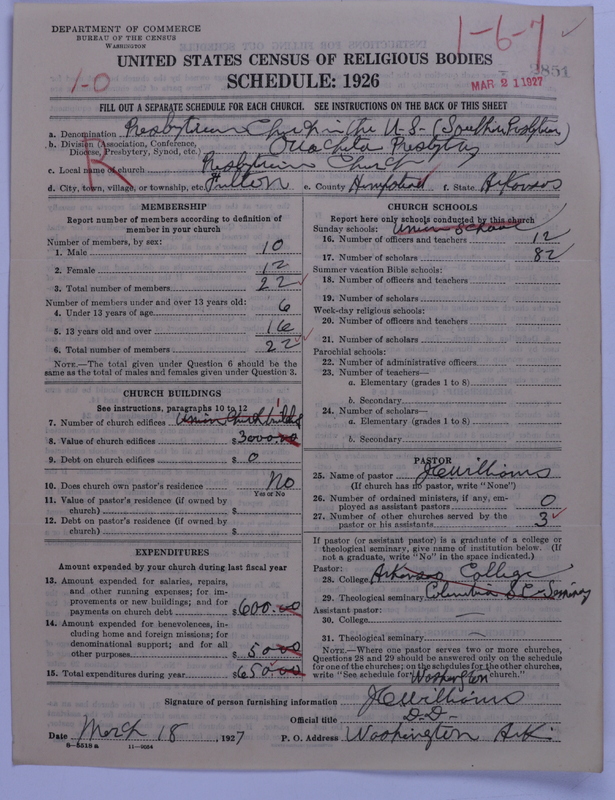 DEPARTMENT OF COMMERCE
BUREAU OF THE CENSUS
WASHINGTON
1-6-7
1-0
2851
MAR 21 1927
UNITED STATES CENSUS OF RELIGIOUS BODIES
SCHEDULE: 1926
FILL OUT A SEPARATE SCHEDULE FOR EACH CHURCH. SEE INSTRUCTIONS ON THE BACK OF THIS SHEET
R
a. Denomination Presbyterian Church in the U-S- (Southern Presbyterian)
b. Division (Association, Conference, Diocese, Presbytery, Synod, etc.) Ouachita Presbytery
c. Local name of church Presbyterian Church
d. City, town, village, or township, etc. Fulton e. County Hempstead f. State Arkansas
MEMBERSHIP
Report number of members according to definition of
member in your church
Number of members, by sex:
1. Male 10
2. Female 12
3. Total number of members 22
Number of members under and over 13 years old:
4. Under 13 years of age 6
5. 13 years old and over 16
6. Total number of members 22
NOTE.—The total given under Question 6 should be the
same as the total of males and females given under Question 3.
CHURCH BUILDINGS
See instructions, paragraphs 10 to 12
7. Number of church edifices Union Church building 1
8. Value of church edifices $3000.00
9. Debt on church edifices $ 0
10. Does church own pastor's residence? No
Yes or No
11. Value of pastor's residence (if owned by
church) $
12. Debt on pastor's residence (if owned by
church) $
EXPENDITURES
Amount expended by your church during last fiscal year
13. Amount expended for salaries, repairs,
and other running expenses; for im-
provements or new buildings; and for
payments on church debt $600.00
14. Amount expended for benevolences, in-
cluding home and foreign missions; for
denominational support; and for all
other purposes $ 50.00
15. Total expenditures during year $650.00
CHURCH SCHOOLS
Report here only schools conducted by this church
Sunday schools: Union School
16. Number of officers and teachers 12
17. Number of scholars 82
Summer vacation Bible schools:
18. Number of officers and teachers
19. Number of scholars
Week-day religious schools:
20. Number of officers and teachers
21. Number of scholars
Parochial schools:
22. Number of administrative officers
23. Number of teachers—
a. Elementary (grades 1 to 8)
b. Secondary
24. Number of scholars—
a. Elementary (grades 1 to 8)
b. Secondary
PASTOR
25. Name of pastor J C Williams
(If church has no pastor, write "None")
26. Number of ordained ministers, if any, em-
ployed as assistant pastors 0
27. Number of other churches served by the
pastor or his assistants 3
If pastor (or assistant pastor) is a graduate of a college or
theological seminary, give name of institution below. (If
not a graduate, write "No" in the space indicated.)
Pastor:
28. College Arkansas College
29. Theological seminary Columbia S C Seminary
Assistant pastor:
30. College
31. Theological seminary
NOTE.—Where one pastor serves two or more churches,
Questions 28 and 29 should be answered only on the schedule
for one of the churches; on the schedules for the other churches,
write "See schedule for Washington church."
Signature of person furnishing information J C Williams
Official title D-D-
Date March 18, 1927 P. O. Address Washington Ark.
8-5518a 11-9054